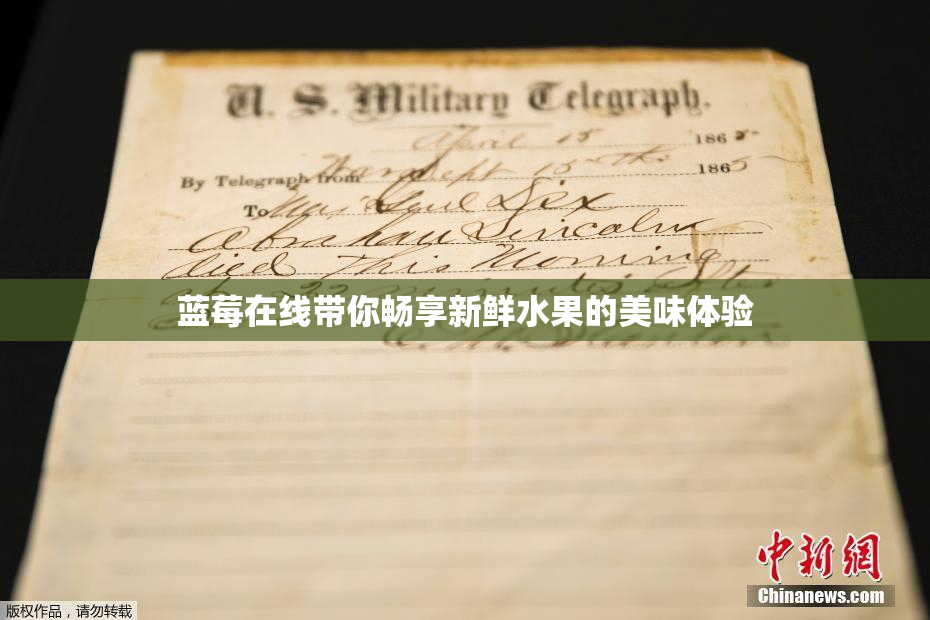 U. S. Military Telegraph.
April 15 1865
By Telegraph from War Dept 15th 1865
To Maj Genl Dix
Abraham Lincoln
died This Morning
22 minutes after
蓝莓在线带你畅享新鲜水果的美味体验
E. M. Stanton
中新网
Chinanews.com
版权作品，请勿转载